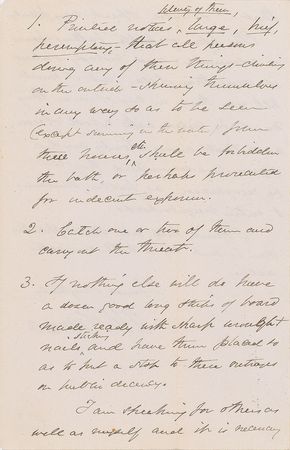 plenty of them,
1. Printed notice, large, brief,
peremptory, - that all persons
doing any of these things - climbing
on the outside - showing themselves
in any way so as to be seen
(except swimming in the water) from
these houses, etc shall be forbidden
the bath, or perhaps prosecuted
for indecent exposure.
2. Catch one or two of them and
carry out the threat.
3. If nothing else will do have
a dozen good long strips of board
made ready with sharp wrought
nails sticking and have them placed so
as to put a stop to these outrages
on public decency.
I am speaking for others as
well as myself and it is necessary